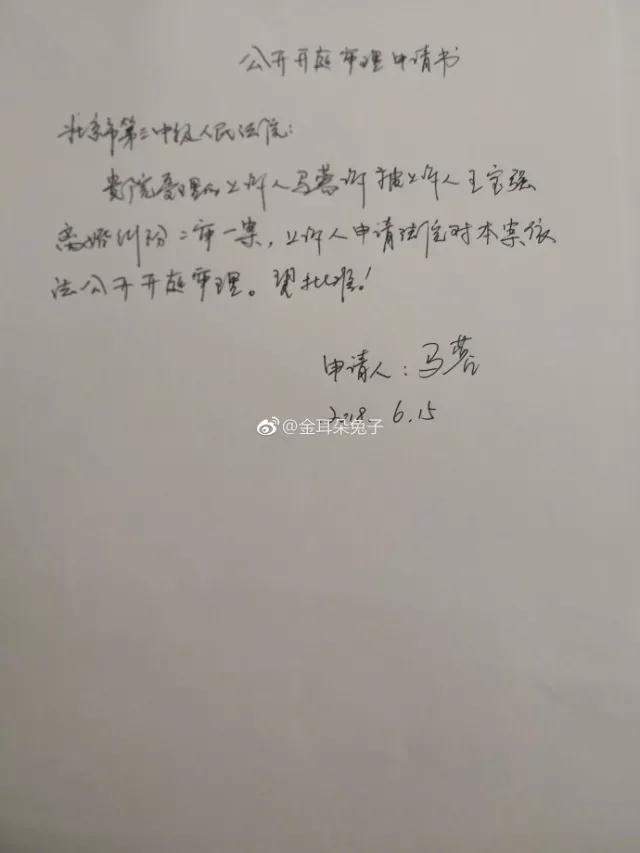 公开开庭审理申请书
北京市第三中级人民法院：
贵院受理的上诉人马蓉诉被上诉人王宝强
离婚纠纷二审一案，上诉人申请法院对本案依
法公开开庭审理。望批准！
申请人：马蓉
2018. 6.15
@金耳朵兔子